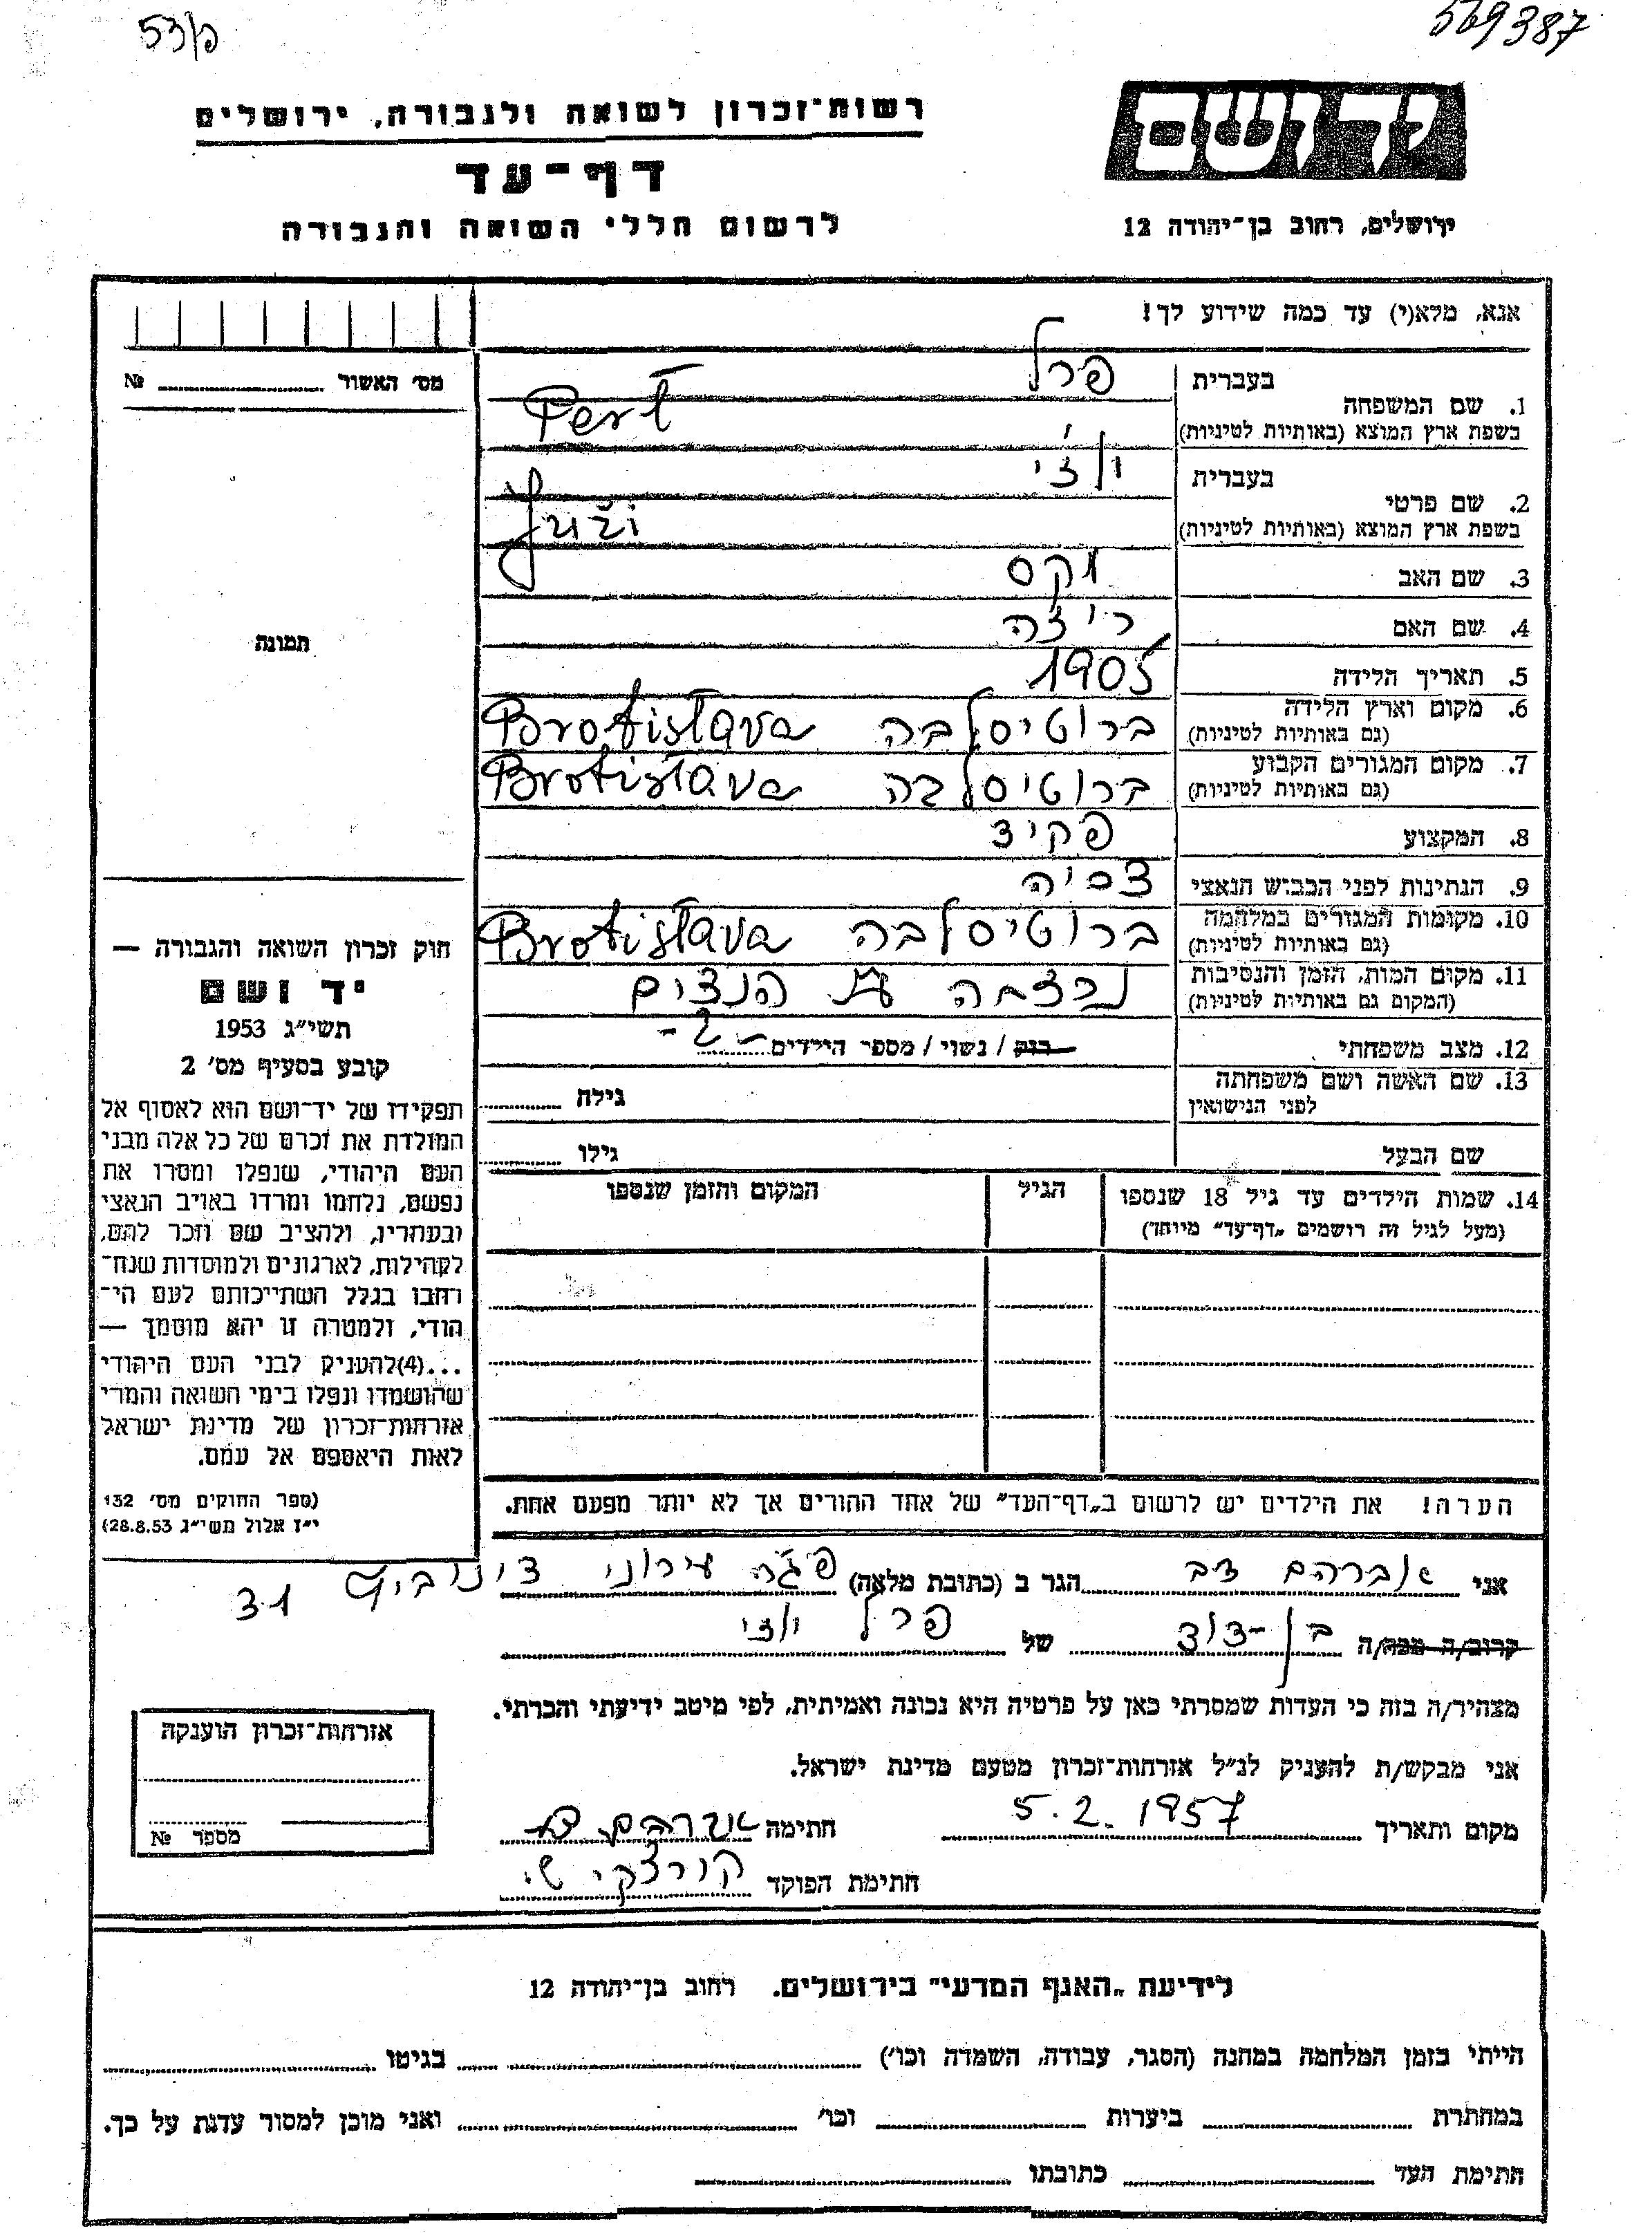 569387
53/פ
יד ושם
רשות־זכרון לשואה ולגבורה, ירושלים
דף־עד
לרשום חללי השואה והגבורה
ירושלים, רחוב בן־יהודה 12
אנא, מלא(י) עד כמה שידוע לך!
מס' האשור № 
בעברית פרל
1. שם המשפחה
בשפת ארץ המוצא (באותיות לטיניות) Perl
בעברית
2. שם פרטי
בשפת ארץ המוצא (באותיות לטיניות) Juži
3. שם האב
4. שם האם
5. תאריך הלידה 1905
6. מקום וארץ הלידה
(גם באותיות לטיניות) ברוטיסלבה Brotislava
7. מקום המגורים הקבוע
(גם באותיות לטיניות) ברוטיסלבה Brotislava
8. המקצוע פקיד
9. הנתינות לפני הכביש הנאצי
10. מקומות המגורים במלחמה
(גם באותיות לטיניות) ברוטיסלבה Brotislava
11. מקום המות, הזמן והנסיבות
(המקום גם באותיות לטיניות) נרצחה הנצים
12. מצב משפחתי רווק / נשוי / מספר הילדים -2-
13. שם האשה ושם משפחתה
לפני הנישואין גילה
שם הבעל גילו
14. שמות הילדים עד גיל 18 שנספו
(מעל לגיל זה רושמים „דף־עד" מיוחד)
הגיל
המקום והזמן שנספו
הערה! את הילדים יש לרשום ב„דף־העד" של אחד ההורים אך לא יותר מפעם אחת.
תמונה
חוק זכרון השואה והגבורה —
יד ושם
תשי"ג 1953
קובע בסעיף מס' 2
תפקידו של יד־ושם הוא לאסוף אל
המולדת את זכרם של כל אלה מבני
העם היהודי, שנפלו ומסרו את
נפשם, נלחמו ומרדו באויב הנאצי
ובעוזריו, ולהציב שם וזכר להם,
לקהילות, לארגונים ולמוסדות שנח־
רבו בגלל השתייכותם לעם הי־
הודי, ולמטרה זו יהא מוסמך —
...(4)להעניק לבני העם היהודי
שהושמדו ונפלו בימי השואה והמרי
אזרחות־זכרון של מדינת ישראל
לאות היאספם אל עמם.
(ספר החוקים מס' 132
י"ז אלול תשי"ג 28.8.53)
אני אברהם הגר ב (כתובת מלאה) עירוני דיזנגוף 31
קרוב/ה מכר/ה בן-דוד של פרל
מצהיר/ה בזה כי העדות שמסרתי כאן על פרטיה היא נכונה ואמיתית, לפי מיטב ידיעתי והכרתי.
אני מבקש/ת להעניק לנ"ל אזרחות־זכרון מטעם מדינת ישראל.
מקום ותאריך 5.2.1957 חתימה אברהם
חתימת הפוקד
אזרחות־זכרון הוענקה
מספר №
לידיעת „האגף המדעי" בירושלים. רחוב בן־יהודה 12
הייתי בזמן המלחמה במחנה (הסגר, עבודה, השמדה וכו') בגיטו
במחתרת ביערות וכו' ואני מוכן למסור עדות על כך.
חתימת העד כתובתו